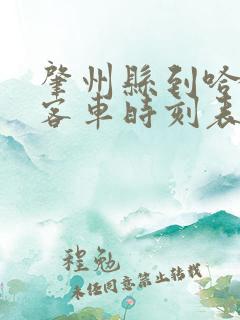 肇州縣到哈
客車時刻表
程勉
未經同意禁止轉載